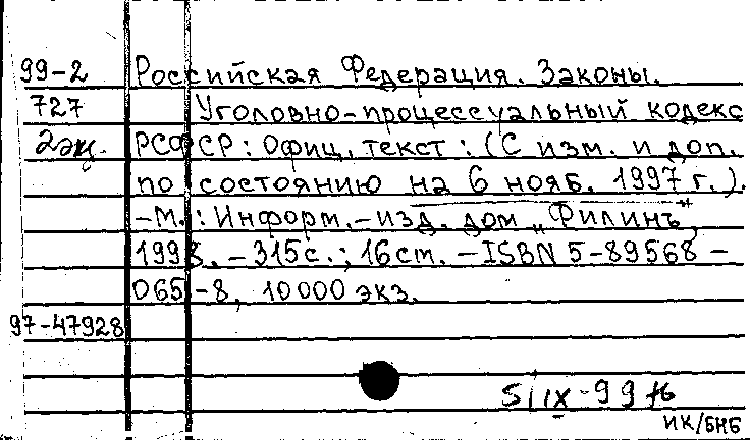 99-2 Российская Федерация. Законы.
727 Уголовно-процессуальный кодекс
2экз. РСФСР: Офиц. текст: (С изм. и доп.
по состоянию на 6 нояб. 1997 г.).
-М.: Информ.-изд. дом "Филинъ",
1998. - 315с.; 16 см. - ISBN 5-89568-
065-8, 10000 экз.
97-47928
5/IX-99
ИК/БНБ